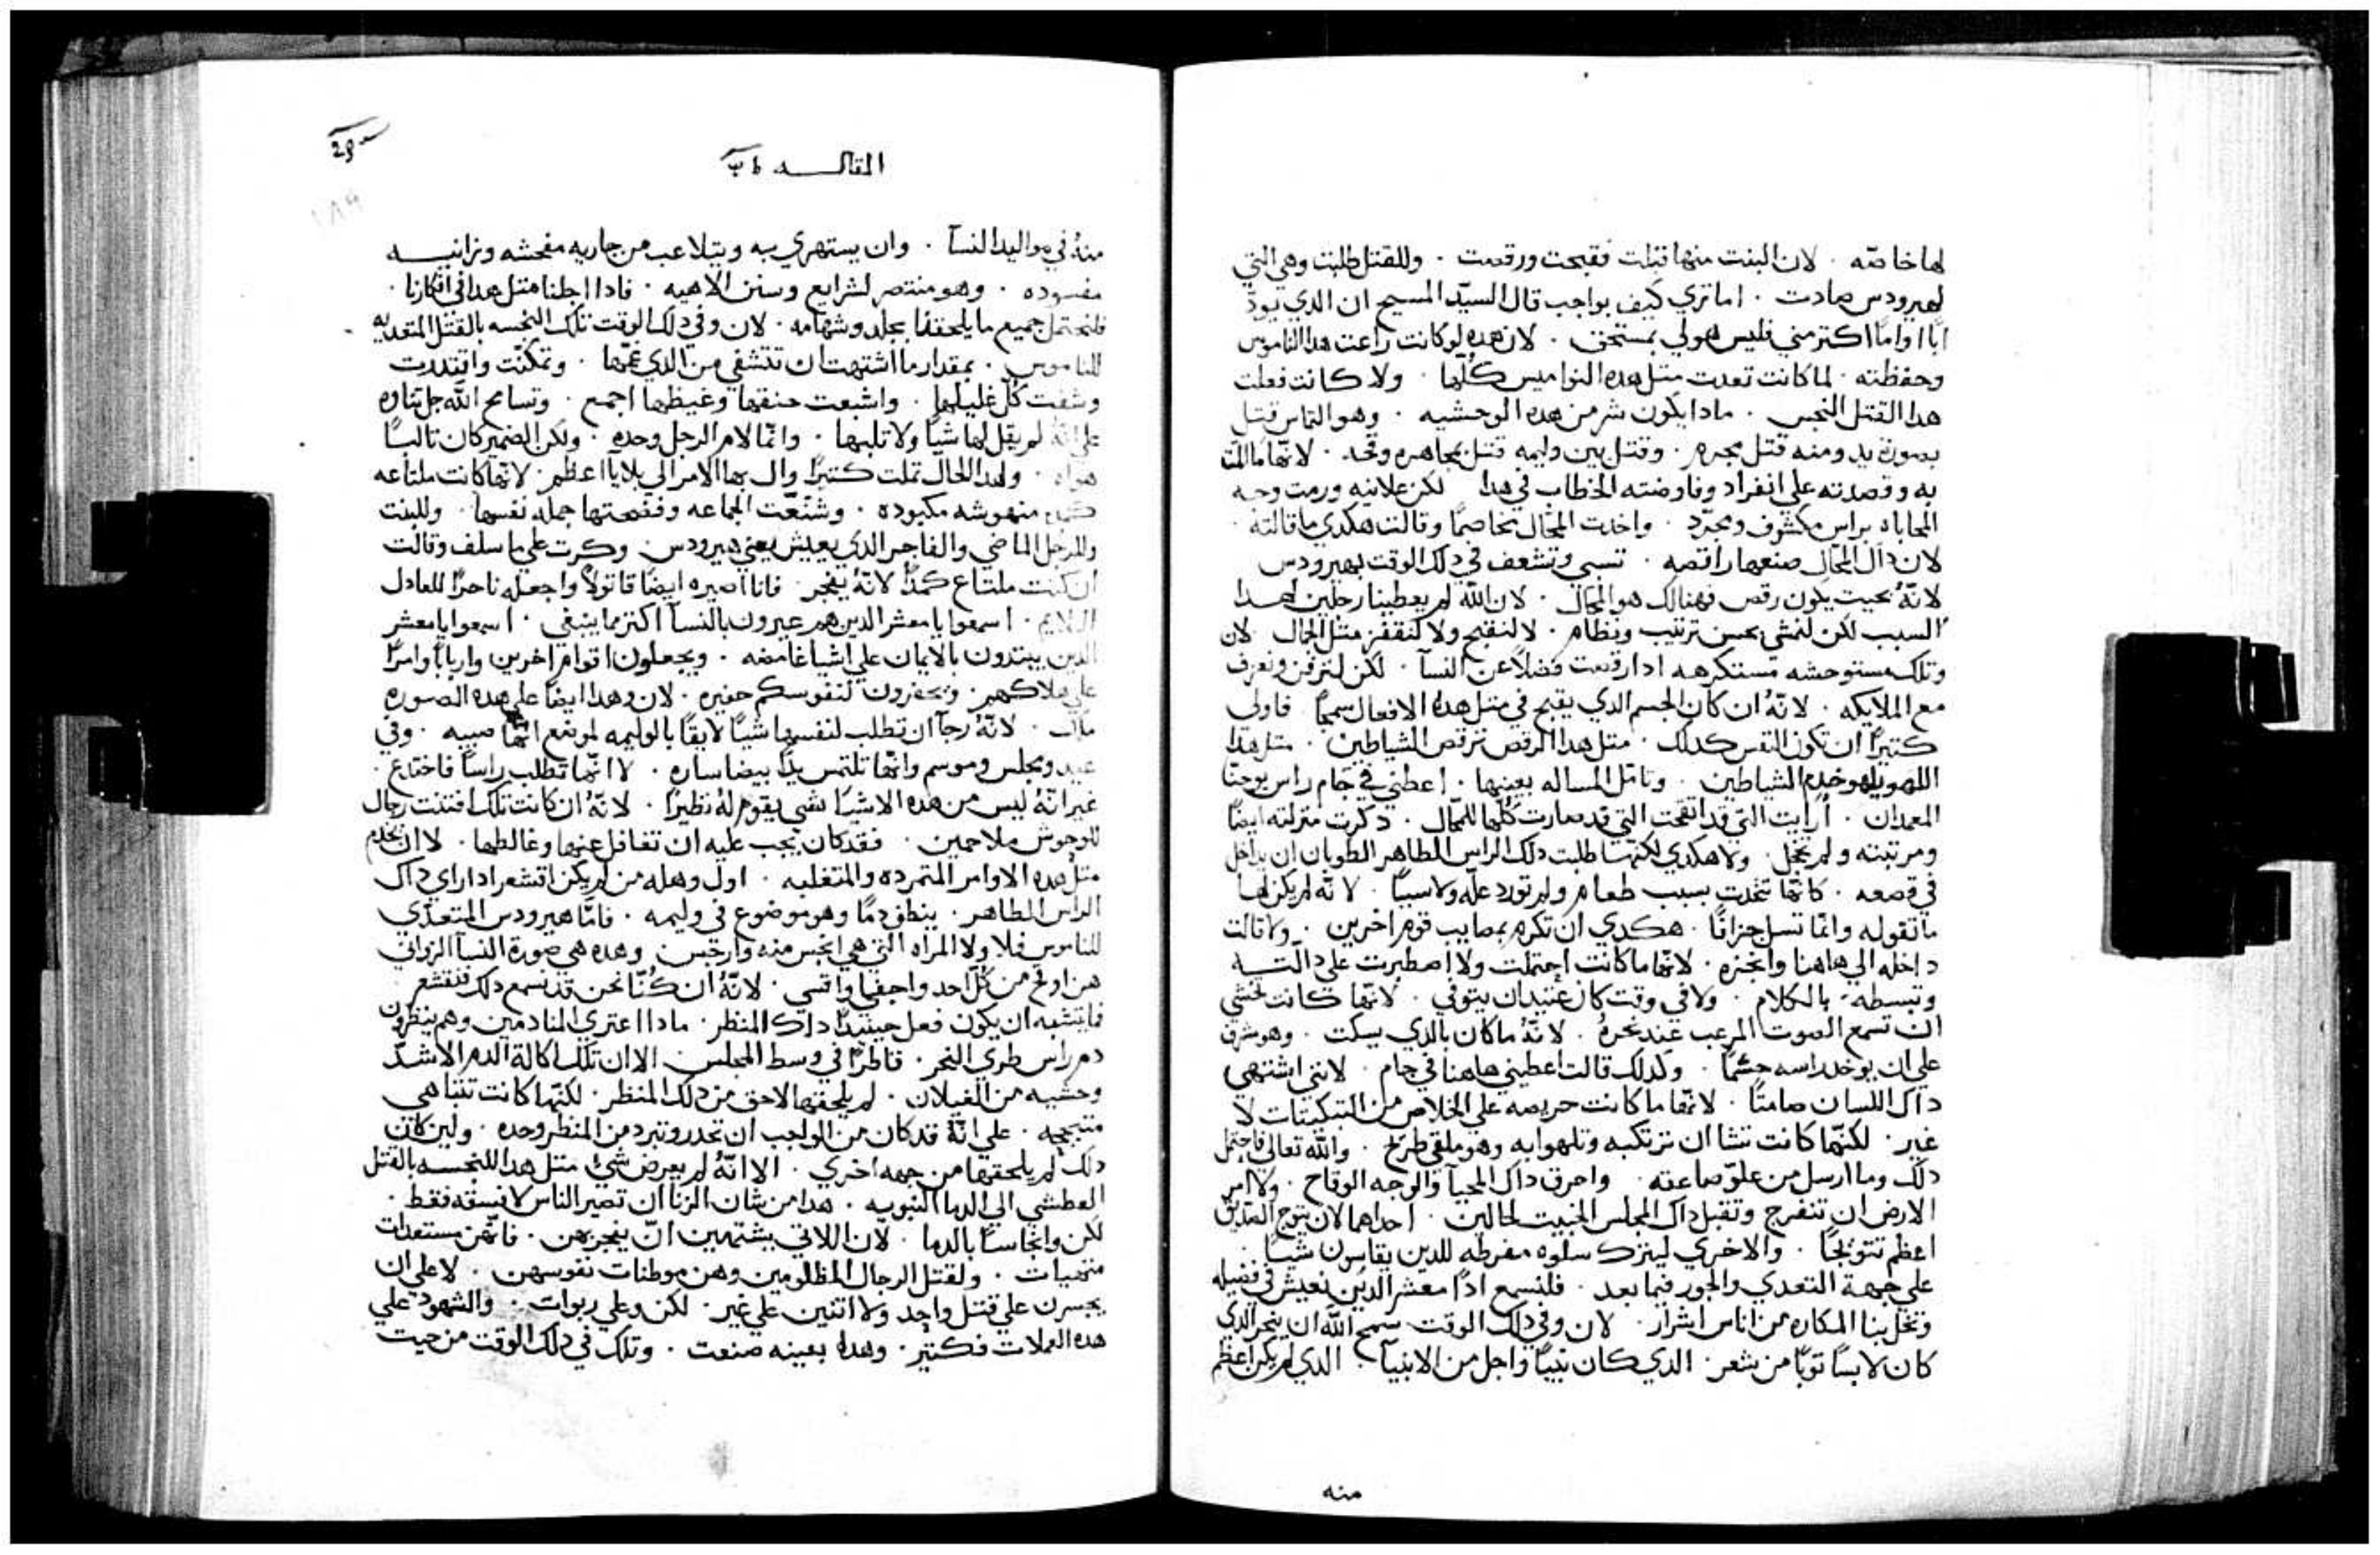 لها خاصّه . لان البنت منها قبلت فقبحت ورقصت . وللقتل طلبت وهي التي
لهيرودس صادت . اما تري كيف بواجب قال السيّد المسيح ان الدي يودّ
ابًا او امًا اكتر مني فليس هو لي بمستحق . لان هده لو كانت راعت هدا الناموس
وحفظته . لما كانت تعدت متل هده النواميس كلّها . ولا كانت فعلت
هدا القتل النجس . مادا يكون شر من هده الوحشيه . وهو التماس قتل
بصورة يد ومنه قتل مجرم . وقتل بين وليمه قتل مجاهره وقحه . لانّها ما المّت
به وقصدته علي انفراد وفاوضته الخطاب في هدا لكن علانيه ورمت وجه
المحاباه براس مكشوف ومجرّد . واخدت المحّال مخاصمًا وقالت هكدي ما قالته .
لان داك المحّال صنعها راقصه . تسبي وتشعف في دلك الوقت بهيرودس
لانّهُ بحيت يكون رقص فهنالك هو المحّال . لان اللّه لم يعطينا رجلين لهدا
السبب لكن لنمشي بحسن ترتيب ونظام . لا لنقبح ولا لنقفز متل الجمال لان
وتلك مستوحشه مستكرهه ادا رقصت فضلاً عن النسآ . لكن لنزفن ونعرف
مع الملايكه . لانّهُ ان كان الجسم الدي يقبح في متل هدهُ الافعال سمجًا فاولي
كتيرًا ان تكون النفس كدلك . متل هدا الرقص ترقص الشياطين . متل هدا
اللهو يلهو خدم الشياطين . وتامّل المساله بعينها . اعطني في جام راس يوحنّا
المعمدان . أرايت التي قد اتقحت التي قد صارت كلّها للمحّال . دكرت منزلته ايضًا
ومرتبته ولم تخجل . ولا هكدي لكنّها طلبت دلك الراس الطاهر الطوبان ان يداخل
في قصعه . كانّها تتحدت بسبب طعام ولم تورد علّه ولا سببًا . لانّه لم يكن لها
ما تقوله وانما تسل جزافًا . هكدي ان تكرم بمصايب قوم اخرين . ولا قالت
داخله الي هاهنا وانحزه . لانّها ما كانت احتملت ولا اصطبرت علي دالّته
وتبسطه بالكلام . ولا في وقت كان عتيدان يتوفي . لانّها كانت تخشي
ان تسمع الصوت المرعب عند نحرهُ . لانّهُ ما كان بالدي يسكت . وهو مشرف
علي ان يوخد راسه حتمًا . وكدلك قالت اعطيني هاهنا في جام . لانني اشتهي
داك اللسان صامتًا . لانّها ما كانت حريصه علي الخلاص من التبكيتات لا
غير . لكنّها كانت تشا ان تزتكبه وتلهوا به وهو ملقي طريح . واللّه تعالي فاحتمل
دلك وما ارسل من علوّ صاعقه . واحرق داك المحيآ والوجه الوقاح . ولا امر
الارض ان تنفرج وتقبل داك المجلس الخبيت لحالين . احداهما لان يتوج الصدّيق
اعظم تتويجًا . والاخري ليترك سلوه مفرطه للدين يقاسون شيًا .
علي جهة التعدي والجور فيما بعد . فلنسمع ادًا معشر الدين نعيش في فضيله
وتحل بنا المكاره من اناس اشرار . لان وفي دلك الوقت سمح اللّه ان ينحر الدي
كان لابسًا توبًا من شعر . الدي كان نبيًا واجل من الانبيآ . الدي لم يكن اعظم
منه
المقالــه
منهُ في مواليد النسآ . وان يستهزي به ويتلاعب من جاريه مفحشه وزانيــه
مفسوده . وهو منتصر لشرايع وسنن الاهيه . فادا اجلنا متل هدا في افكارنا .
فلنحتمل جميع ما يلحقنا بجلد وشهامه . لان وفي دلك الوقت تلك النجسه بالقتل المتعديه
للناموس . بمقدار ما اشتهت ان تتشفي من الدي غمّها . وتمكنّت واقتدرت
وشفت كلّ غليلها . واشبعت حنقها وغيظها اجمع . وتسامح اللّه جل تناوه
علي انّه لم يقل لها شيًا ولا تلبها . وانّما لام الرجل وحده . ولكن الضمير كان تالبًا
هواه . ولهدا الحال تملت كتيرًا وال بها الامر الي بلايا اعظم . لانّها كانت ملتاعه
منهوشه مكبوده . وشنّعت الجماعه وفضحتها جمله نفسها . وللبنت
وللرجل الماضي والفاجر الدي يعيش يعني هيرودس . وكرت علي ما سلف وقالت
ان كنت ملتاع كمدًا لانّهُ يفجر . فانا اصيره ايضًا قاتولاً واجعله ناحرًا للعادل
اللايم . اسمعوا يا معشر الدين هم عيرون بالنسآ اكتر مما ينبغي . اسمعوا يا معشر
الدين يبتدون بالايمان علي اشيا غامضه . ويجعلون اقوام اخرين واربابًا وامرًا
علي هلاكهم . وتحفرون لنفوسكم حفيره . لان وهدا ايضًا علي هده الصوره
هلك . لانّهُ رجآ ان تطلب لنفسها شيًا لايقًا بالوليمه لموضع انّها صبيه . وفي
عيد ومجلس وموسم وانّها تلتمس يدًا بيضا ساره . لا انّها تطلب راسًا فاختدع .
غير انّهُ ليس من هده الاشيآ شي يقوم لهُ نظيرًا . لانّهُ ان كانت تلك افتنت رجال
للوحوش ملاحمين . فقد كان يجب عليه ان تغافل عنها وغالطها . لا ان يخدم
متل هده الاوامر المتمرده والمتغلبه . اول وهله من لم يكن اتشعر ادا راي داك
الراس الطاهر . ينطف دمًا وهو موضوع في وليمه . فامّا هيرودس المتعدّي
للناموس فلا ولا المراه التي هي انجس منه وارجس . وهده هي صورة النسآ الزواني
هن اوقح من كلّ احد واجفي واقسي . لانّهُ ان كُنّا نحن قد نسمع دلك فنقشعر
فما يشبه ان يكون فعل حينيدًا داك المنظر . مادا اعتري المنادمين وهم ينظرون
دم راس طوي النحر . قاطرًا في وسط المجلس الا ان تلك اكالة الدم الاشدّ
وحشيه من الغيلان . لم يلحقها لاحق من دلك المنظر . لكنّها كانت تتباهي
متبجحه . علي انّهُ قد كان من الواجب ان تخدر وتبرد من المنظر وحده . ولين كان
دلك لم يلحقها من جهه اخري . الا انّهُ لم يعرض شيً متل هدا للنجسه بالقتل
العطشي الي الدما النبويه . هدا من شان الزنا ان تصير الناس لا فسقه فقط .
لكن وانجاسًا بالدما . لان اللاتي يشتهين ان يفجر بهن . فانّهن مستعدات
متهيات . ولقتل الرجال المظلومين وهن موطنات نفوسهن . لا علي ان
يجسرن علي قتل واحد ولا اتنين علي غير . لكن وعلي ربوات . والشهود علي
هده العملات فكتير . وهدا بعينه صنعت . وتلك في دلك الوقت من حيت